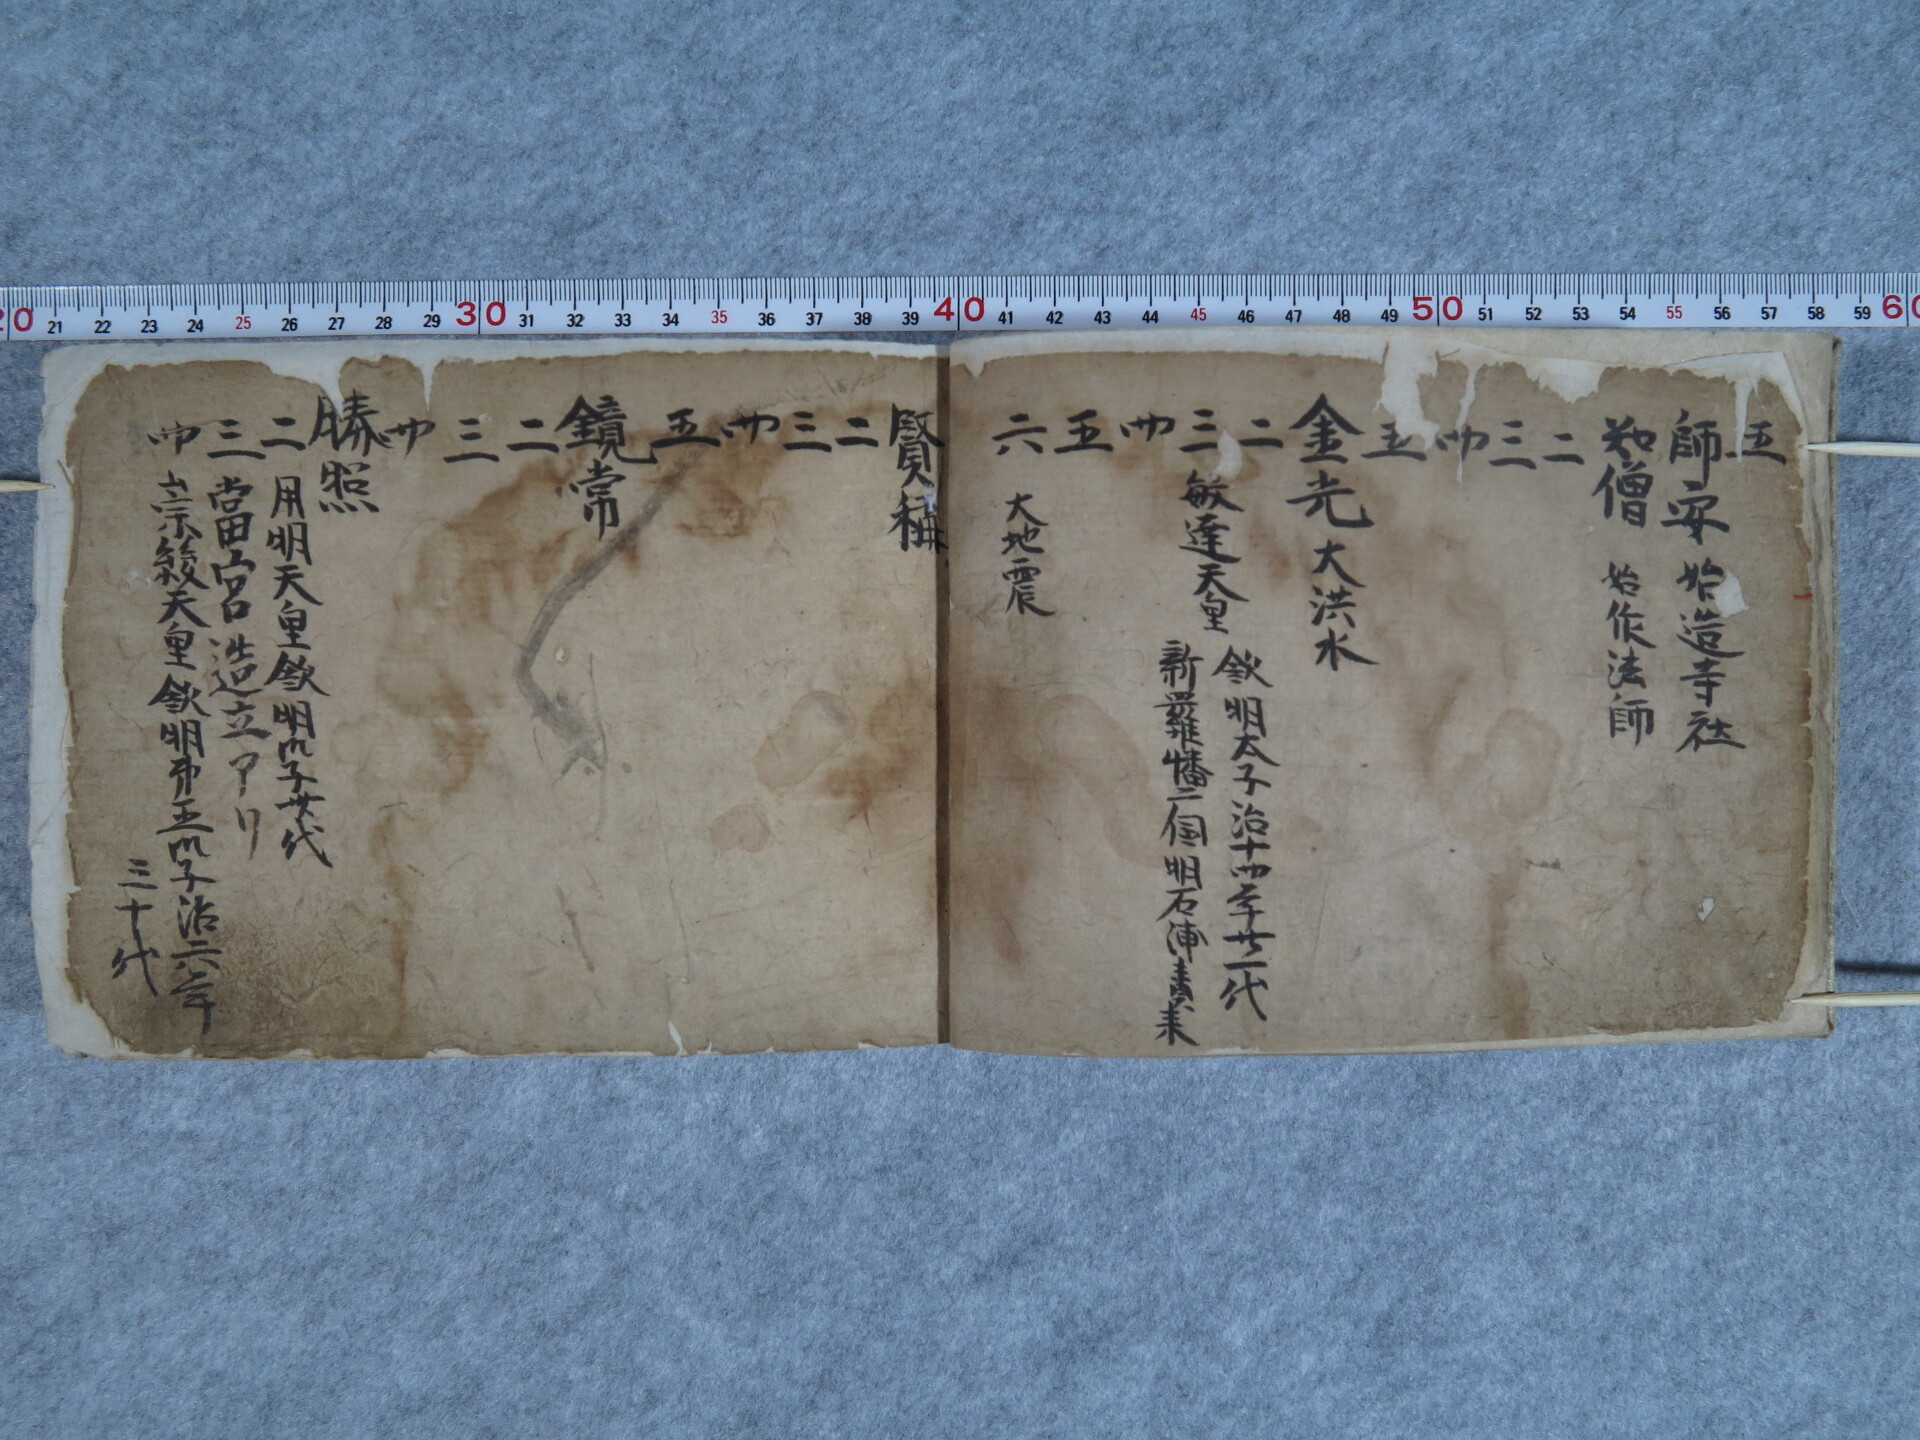 五
師安 始造寺社
知僧 始作法師
二
三
四
五
金光 大洪水
二
三 敏達天皇 欽明太子治十四年廿一代
新羅幡二個明石浦責来
四
五
六 大地震
賢称
二
三
四
五
鏡常
二
三
四
勝照
二 用明天皇欽明四子廿代
三 當宮造立アリ
四 崇峻天皇欽明第五四子治六年
三十代
20 21 22 23 24 25 26 27 28 29 30 31 32 33 34 35 36 37 38 39 40 41 42 43 44 45 46 47 48 49 50 51 52 53 54 55 56 57 58 59 60